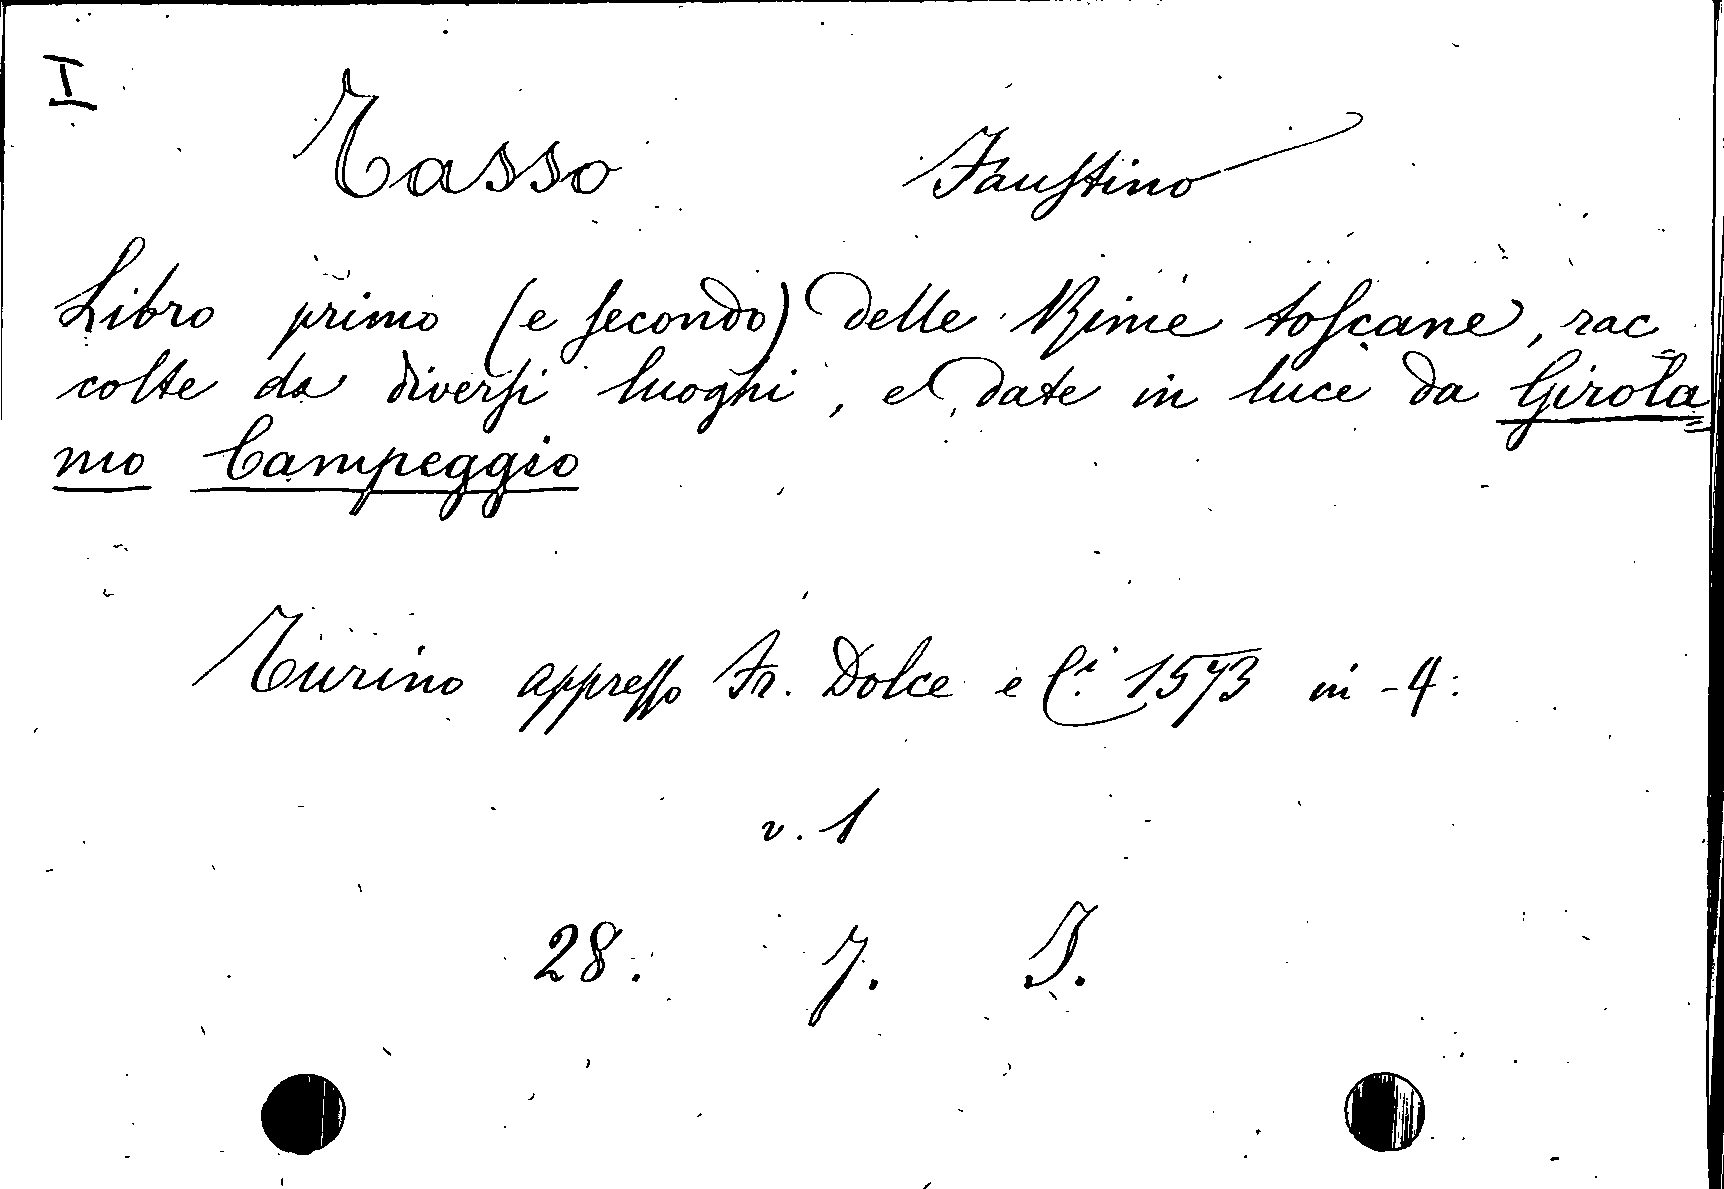 I
Tasso Faustino
Libro primo (e secondo) delle Rime toscane, rac=
colte da diversi luoghi, e date in luce da Girola=
mo Campeggio
Turino appresso Fr. Dolce e C.i 1573 in-4:
v. 1
28. 7. I.